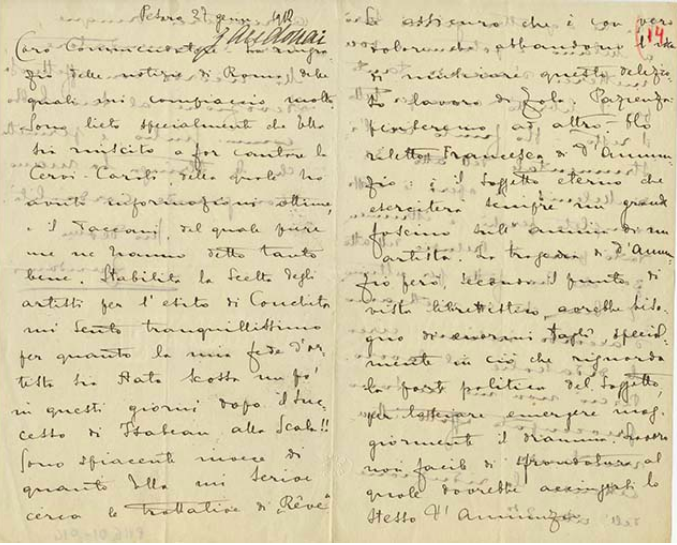 Pesaro 27 genn 1912
Zandonai
Caro Commendatore La ringra-
zio delle notizie di Roma delle
quali mi compiaccio molto.
Sono lieto specialmente che Ella
sia riuscito a far cantare la
Cervi-Caroli, della quale ho
avuto informazioni ottime,
e il Taccani, del quale pure
me ne hanno detto tanto
bene. Stabilita la scelta degli
artisti per l'esito di Conchita
mi sento tranquillissimo
per quanto la mia fede d'ar-
tista sia stata scossa un po'
in questi giorni dopo il suc-
cesso di Isabeau alla Scala!!
Sono spiacente invece di
quanto Ella mi scrive
circa le trattative di "Rêve"
14
Le assicuro che è con vero
dolore che abbandono l'idea
di musicare questo delizio-
so lavoro di Zola. Pazienza
penseremo ad altro. Ho
riletto Francesca di D'Annun-
zio: è il soggetto eterno che
eserciterà sempre un grande
fascino sull'anima di un
artista. La tragedia di D'Annun-
zio però, secondo il punto di
vista librettistico, avrebbe biso-
gno di enormi tagli special-
mente in ciò che riguarda
la parte politica del soggetto,
per lasciare emergere mag-
giormente il dramma. Lavoro
non facile di sfrondatura, al
quale dovrebbe accingersi lo
stesso D'Annunzio